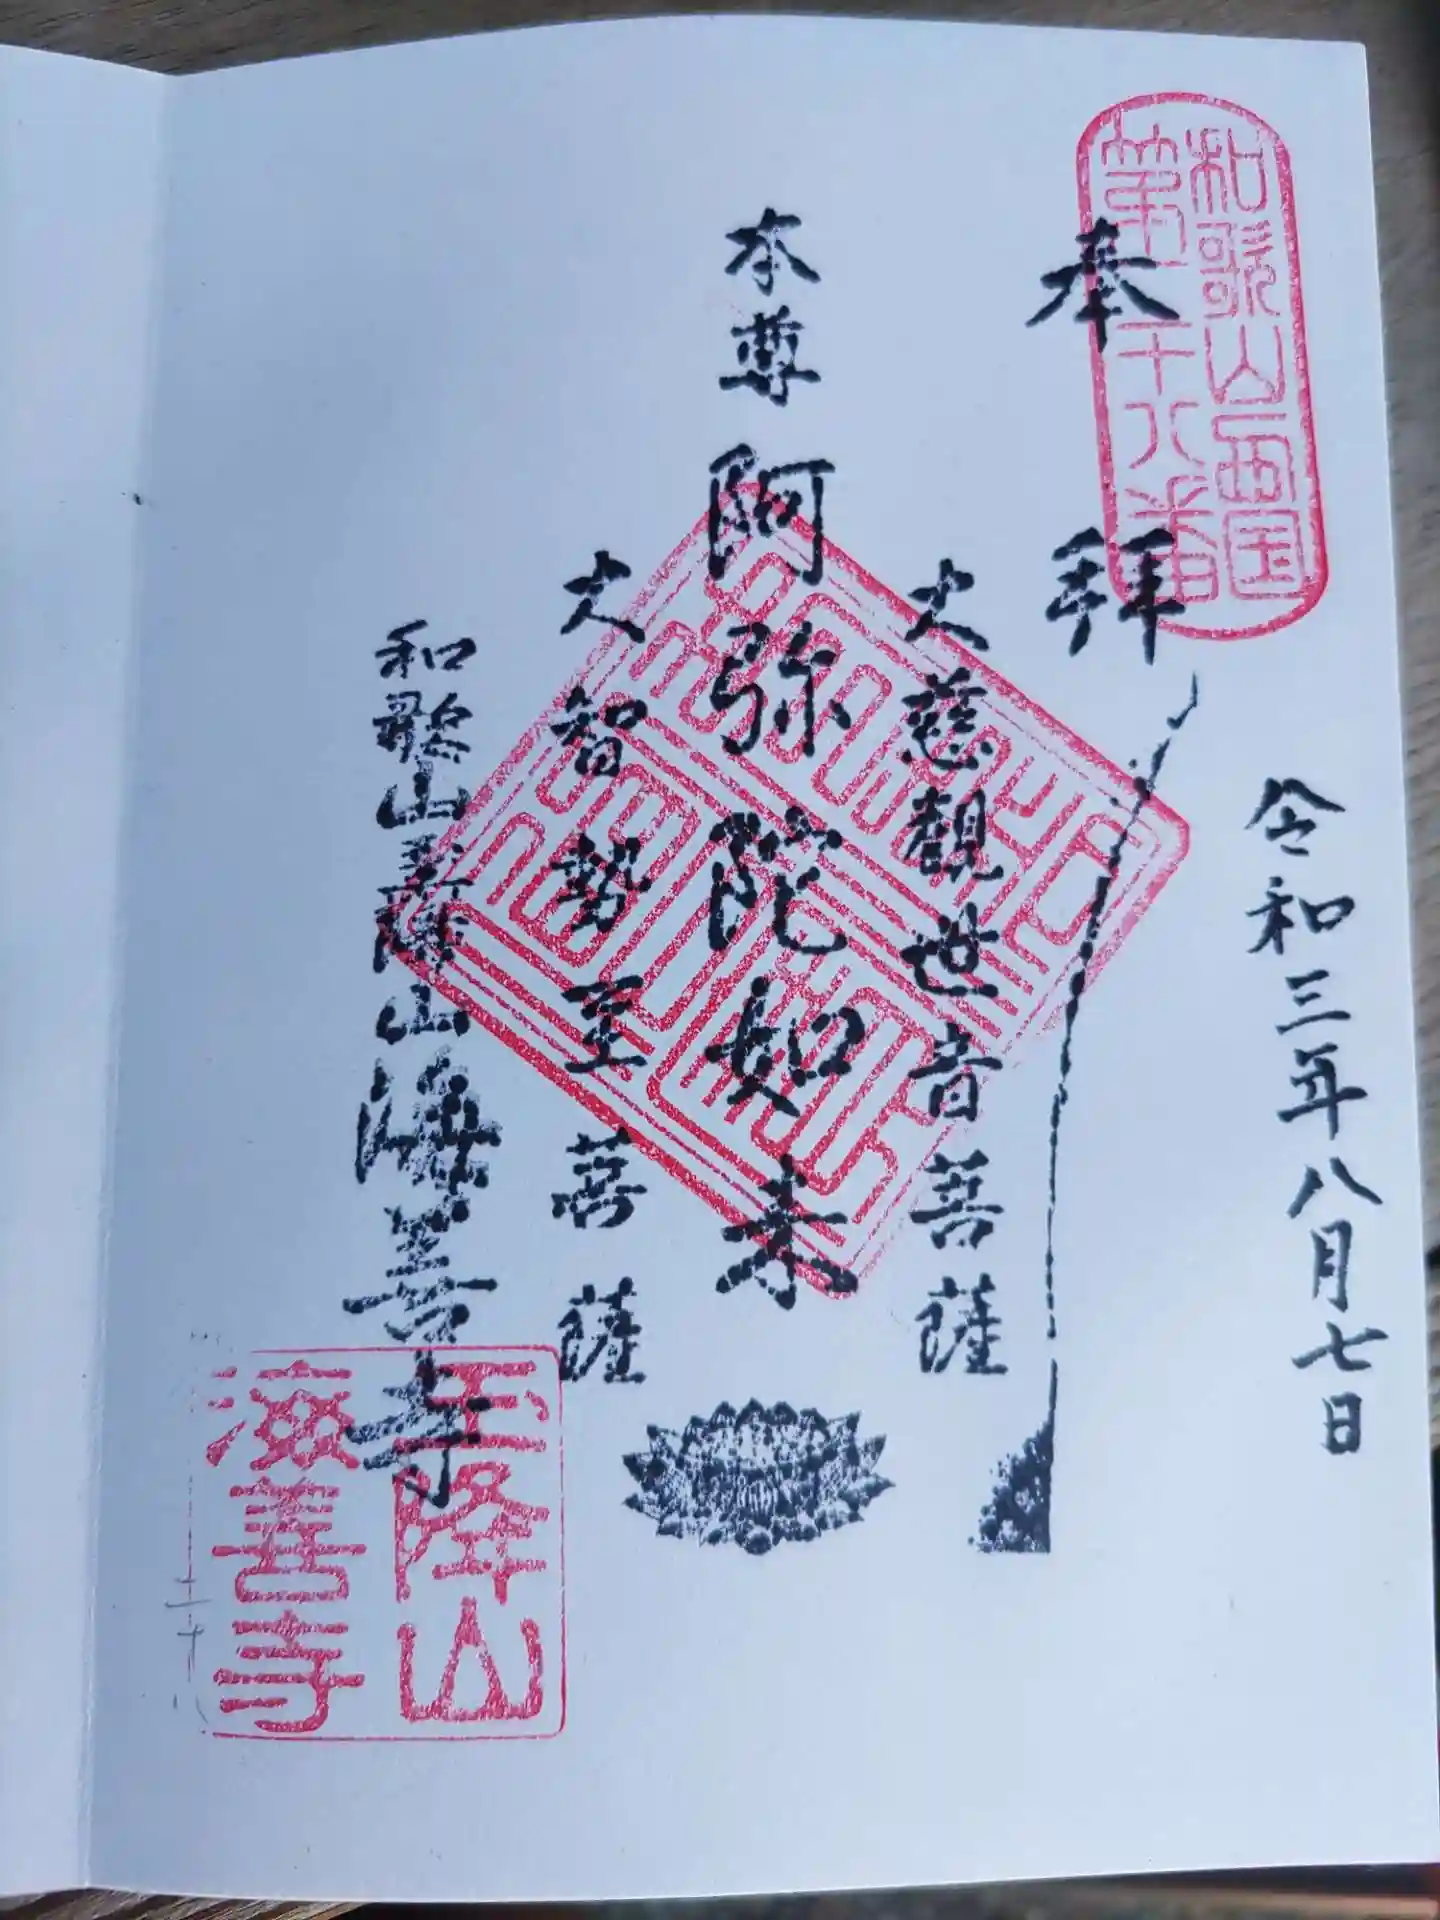 和歌山西国
第十八番
奉拝
令和三年八月七日
大慈観世音菩薩
本尊 阿弥陀如来
大智勢至菩薩
和歌山玉降山海善寺
玉降山
海善寺